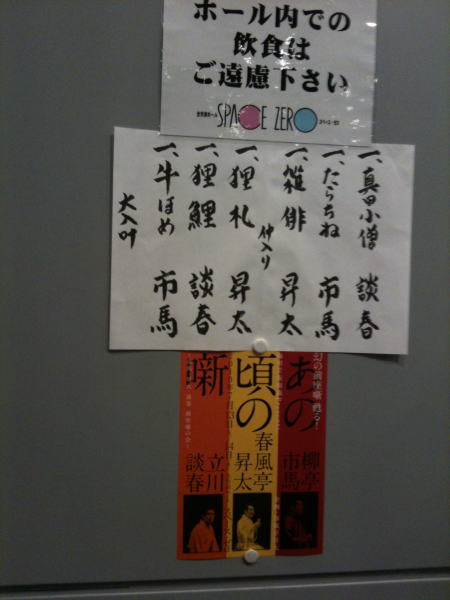 ホール内での
飲食は
ご遠慮下さい
全労済ホール SPACE ZERO スペース・ゼロ
一、真田小僧 談春
一、たらちね 市馬
一、雑俳 昇太
仲入り
一、狸札 昇太
一、狸鯉 談春
一、牛ほめ 市馬
大入叶
幻の前座噺、甦る!
あの
頃の
噺
柳亭
市馬
春風亭
昇太
立川
談春